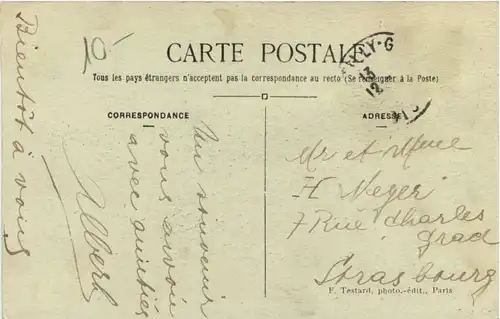 10-
CARTE POSTALE
Tous les pays étrangers n'acceptent pas la correspondance au recto (Se renseigner à la Poste)
CORRESPONDANCE
Un souvenir
vous envoie
avec amitiés
Albert
Bientôt à vous
ADRESSE
Mr et Mme
H Neger
7 Rue Charles
Grad
Strasbourg
F. Testard, photo.-édit., Paris
LY-G
13
12